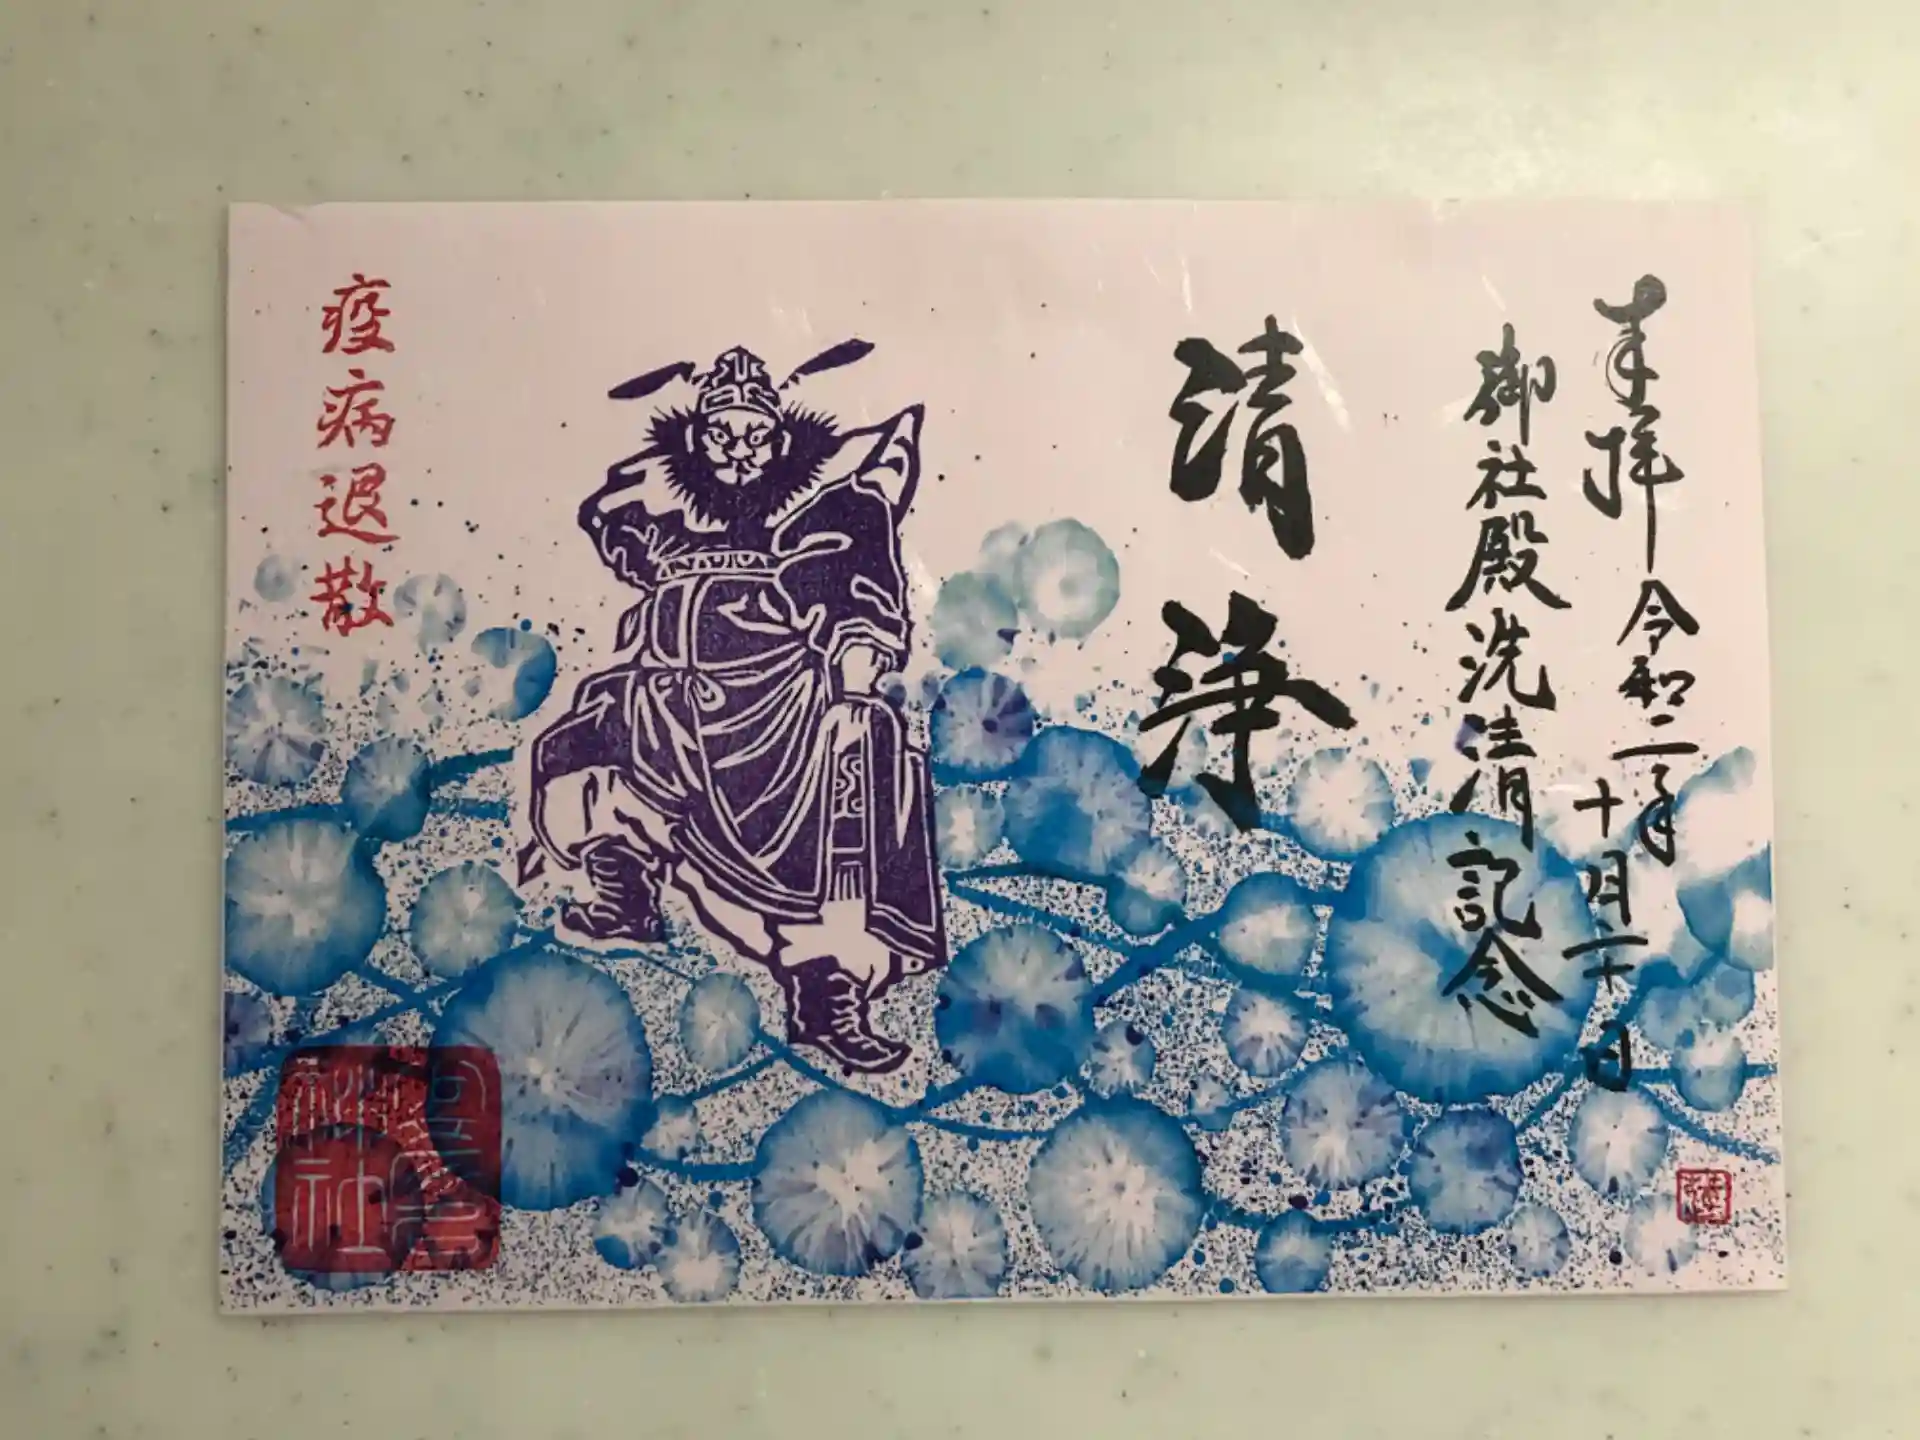 奉拝
令和二年
十月二十日
御社殿洗清記念
清浄
疫病退散
神社